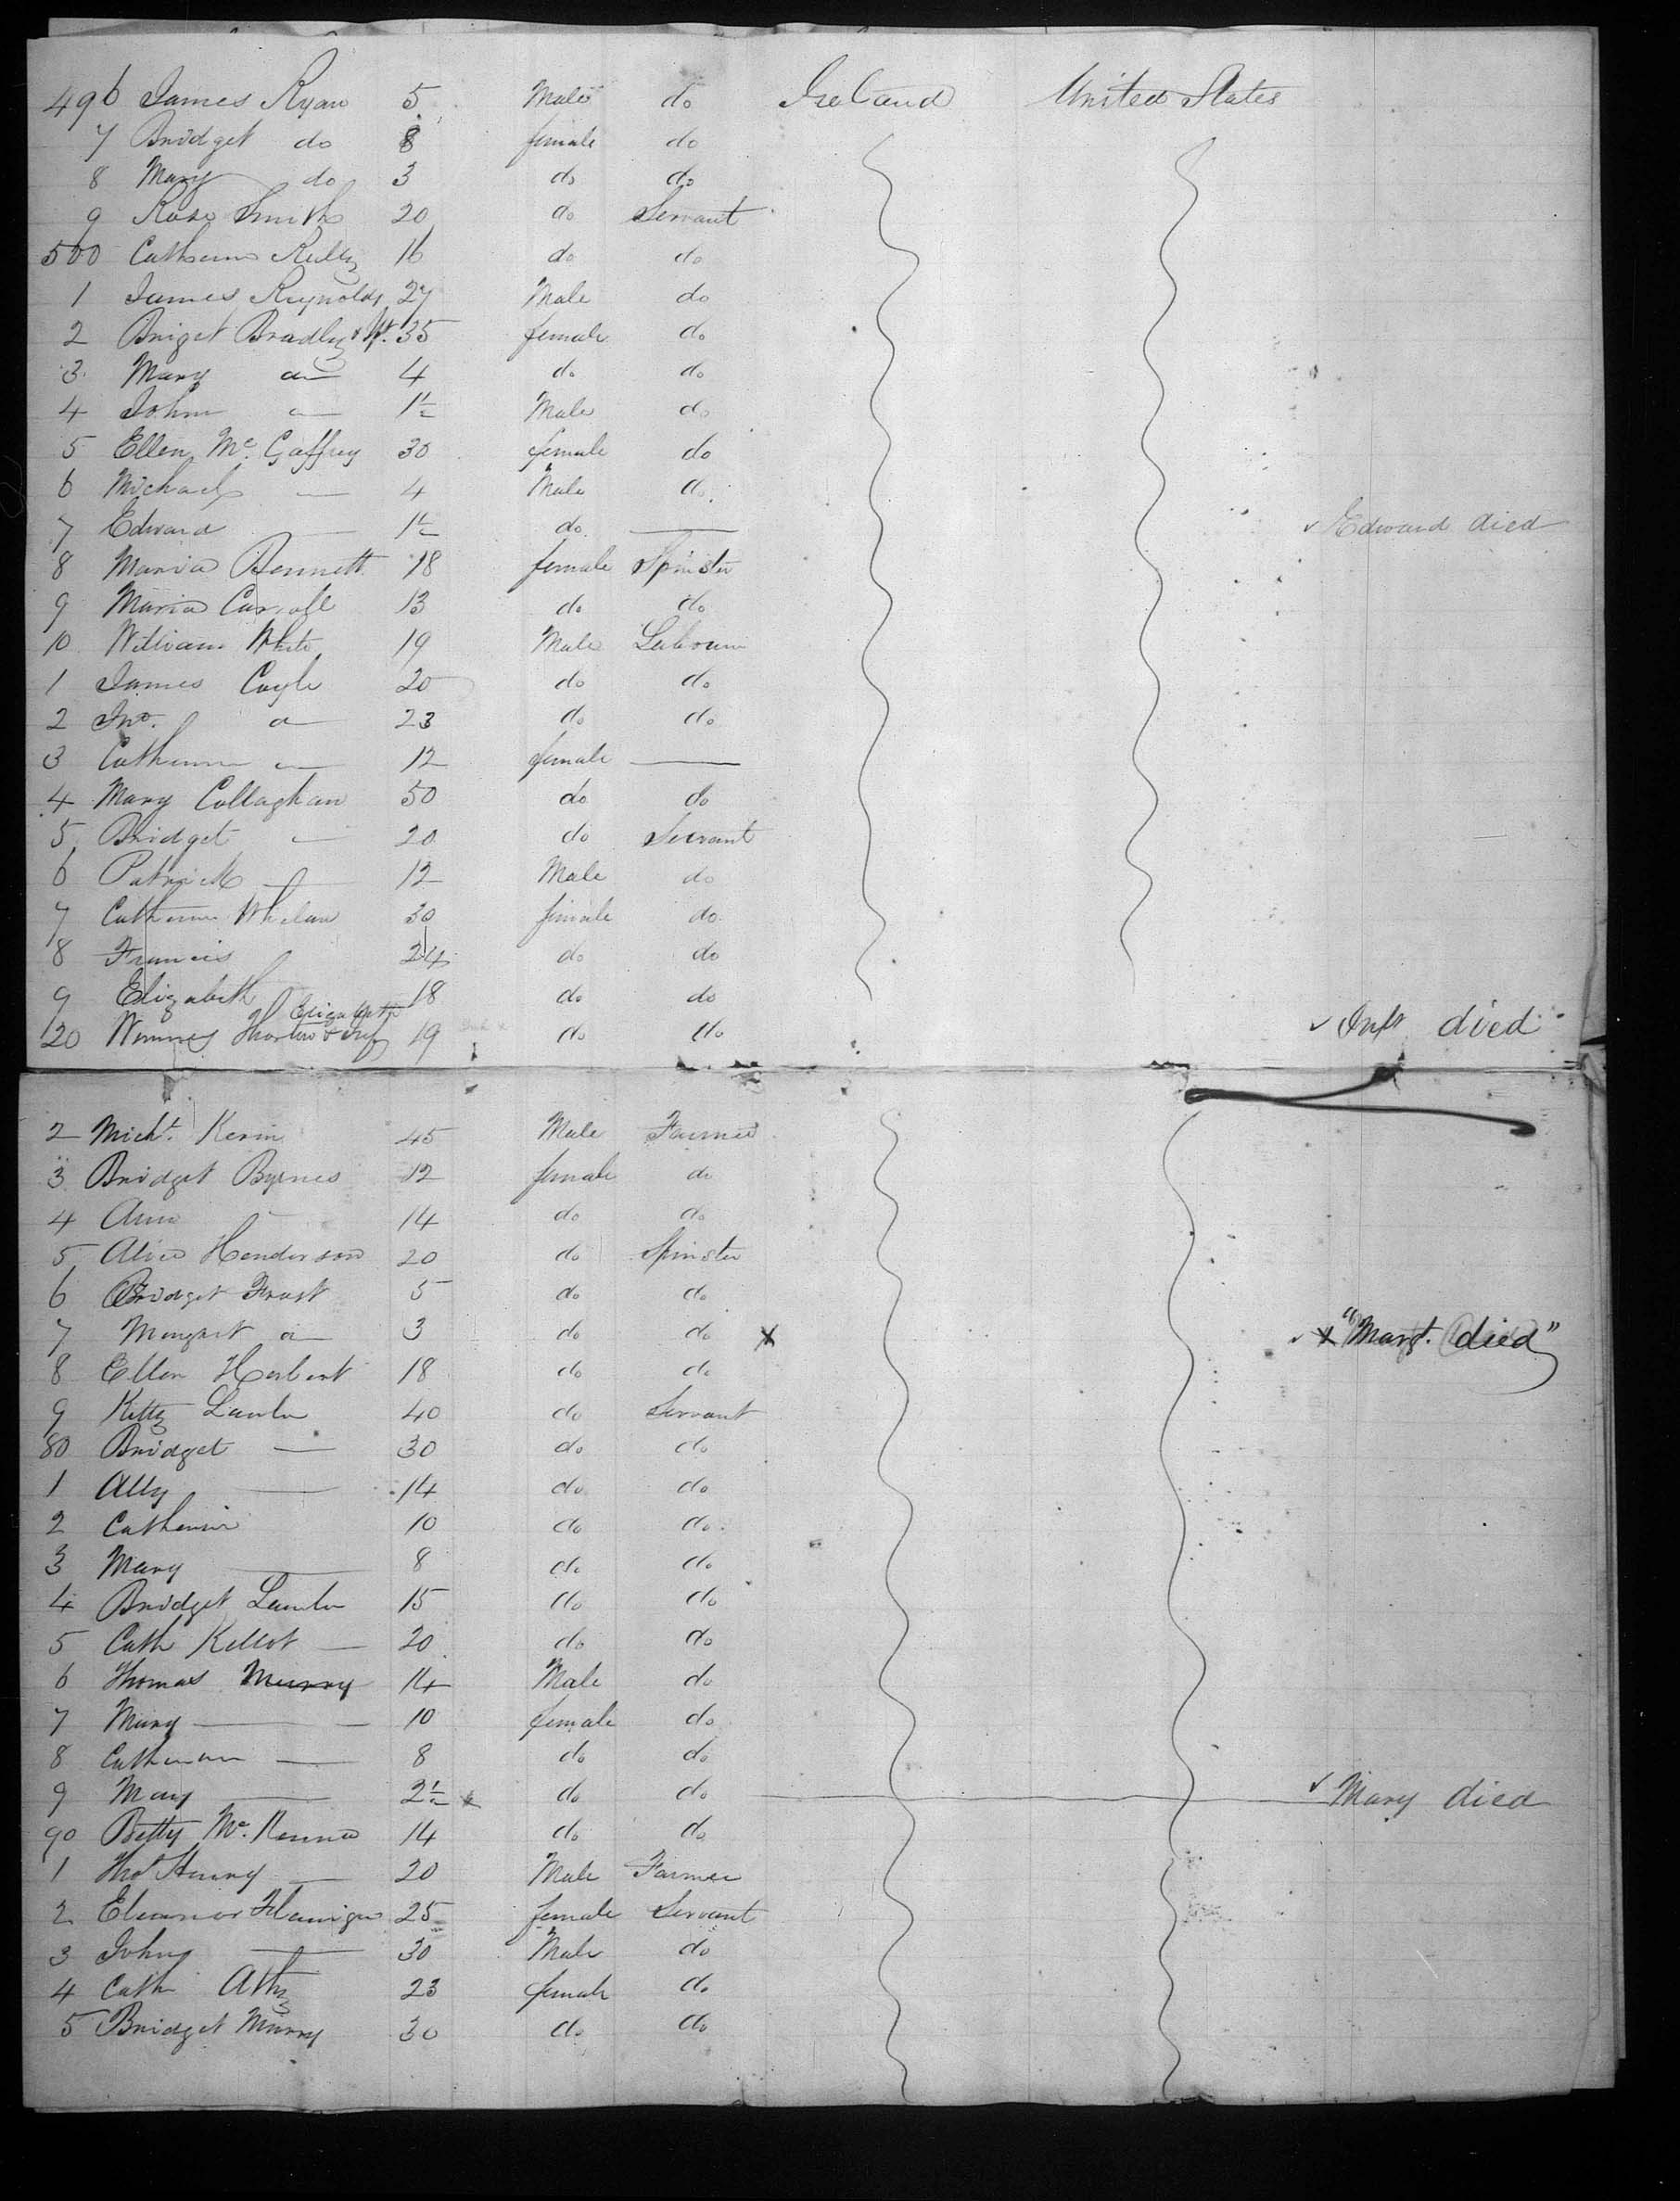 496 James Ryan 5 Male do Ireland United States
7 Bridget do 8 female do
8 Mary do 3 do do
9 Rose Smith 20 do Servant
500 Catherine Reilly 16 do do
1 James Reynolds 27 Male do
2 Briget Bradley & Inft. 35 female do
3 Mary do 4 do do
4 John — 1½ Male do
5 Ellen Mc. Gaffrey 30 female do
6 Michael — 4 Male do
7 Edward — 1½ do — Edward died
8 Maria Bennett 18 female Spinster
9 Maria Carroll 13 do do
10 William White 19 Male Labourer
1 James Coyle 20 do do
2 Jno. do 23 do do
3 Catherine — 12 female —
4 Mary Collaghan 50 do do
5 Bridget — 20 do Servant
6 Patrick — 12 Male do
7 Catherine Whelan 30 female do
8 Francis 24 do do
9 Elizabeth 18 do do
Elizabeth
20 Winney & Inf 19 do do Inft died
2 Michl. Kerin 45 Male Farmer
3 Bridget Byrnes 12 female do
4 Ann — 14 do do
5 Alice Henderson 20 do Spinster
6 Bridget Frost 5 do do
7 Margaret do 3 do do x x "Margt. died"
8 Ellen Herbert 18 do do
9 Kitty Lawler 40 do Servant
80 Bridget — 30 do do
1 Ally — 14 do do
2 Catherine 10 do do
3 Mary — 8 do do
4 Bridget Lawler 15 do do
5 Cath Kellot — 20 do do
6 Thomas Murray 14 Male do
7 Mary — 10 female do
8 Catherine — 8 do do
9 Mary — 2½ x do do Mary died
90 Betty Mc. Kenna 14 do do
1 Thos Henry — 20 Male Farmer
2 Eleanor 25 female Servant
3 John — 30 Male do
4 Cath 23 female do
5 Bridget Murry 30 do do